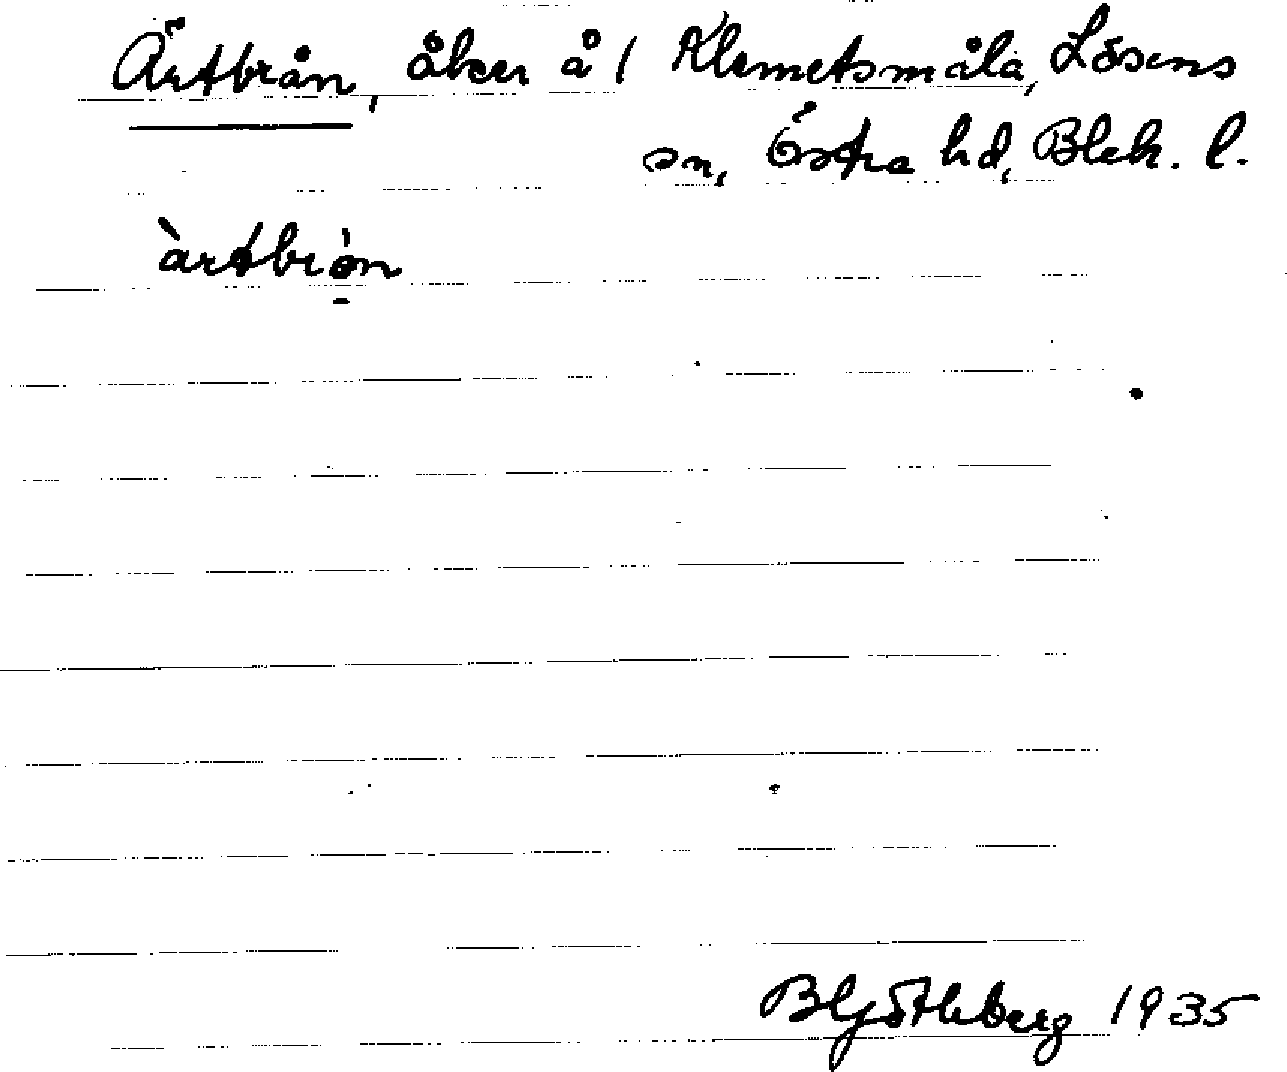 Ärtbrån, åker å 1 Klemetsmåla, Lösens
sn, Östra hd, Blek. l.
àrtbrȯn
1935